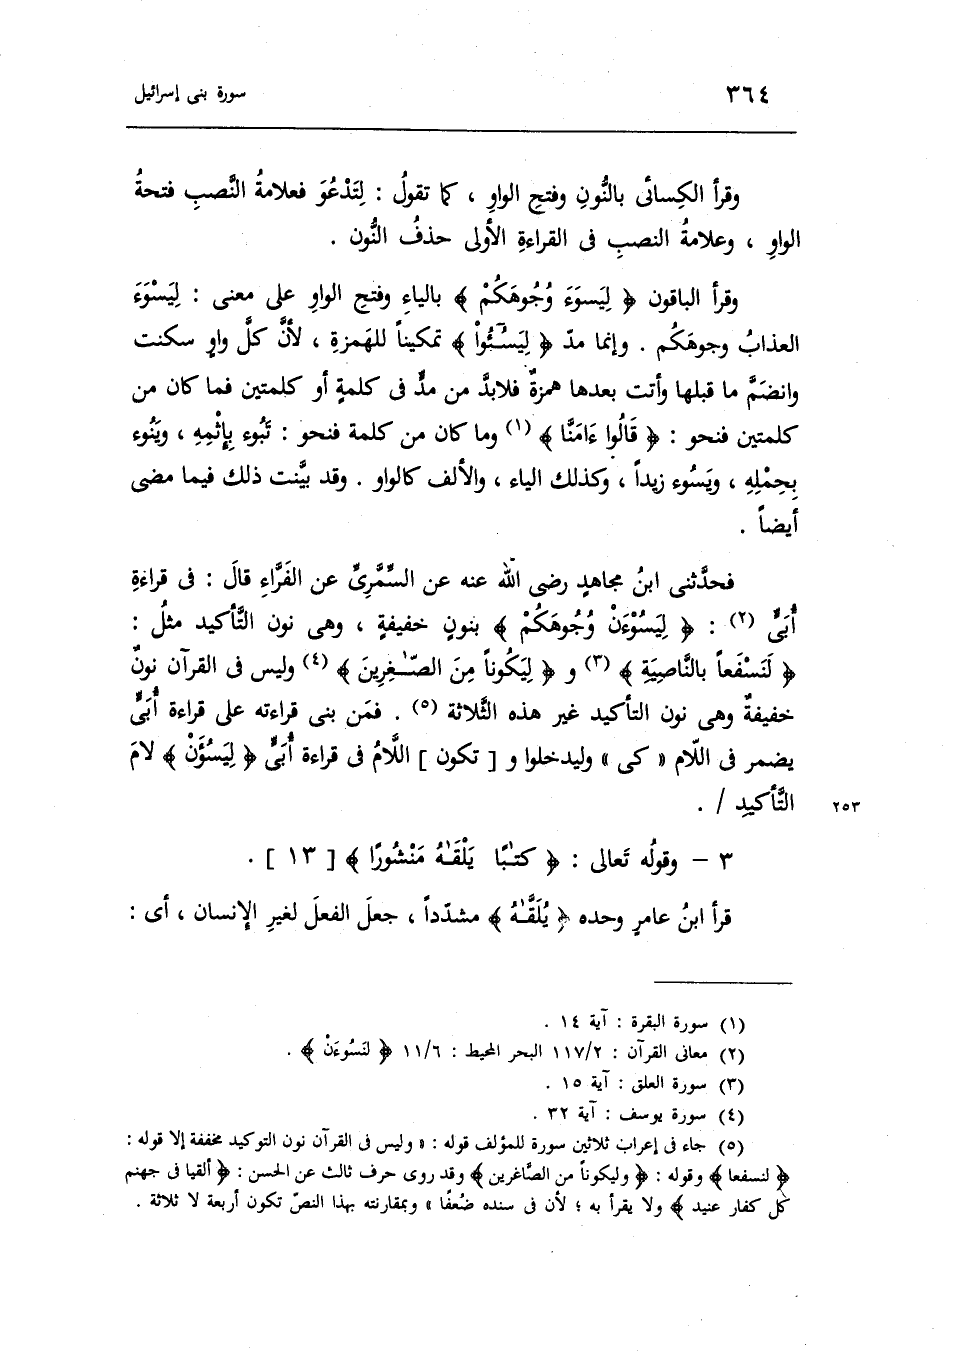 ٣٦٤
سورة بنى إسرائيل
وقرأ الكِسائى بالنُّونِ وفتحِ الواوِ ، كما تقولُ : لِتَدْعُوَ فعلامةُ النَّصبِ فتحةُ
الواوِ ، وعلامةُ النصبِ فى القراءةِ الأولى حذفُ النُّون .
وقرأ الباقون ﴿ لِيَسوَءَ وُجُوهَكُمْ ﴾ بالياءِ وفتحِ الواوِ على معنى : لِيَسْوَءَ
العذابُ وجوهَكُم . وإنما مدّ ﴿ لِيَسُـۤـُٔواْ ﴾ تمكيناً للهَمزةِ ، لأنَّ كلَّ واوٍ سكنت
وانضَمَّ ما قبلها وأتت بعدها همزةٌ فلابدَّ من مدٍّ فى كلمةٍ أو كلمتين فما كان من
كلمتين فنحو : ﴿ قَالُوا ءَامَنَّا ﴾ (١) وما كان من كلمة فنحو : تَبُوء بِإثْمِهِ ، ويَنُوء
بِحِمْلِهِ ، ويَسُوء زيداً ، وكذلك الياء ، والألف كالواو . وقد بيَّنت ذلك فيما مضى
أيضاً .
فحدَّثنى ابنُ مجاهدٍ رضى الله عنه عن السِّمَّرِىِّ عن الفَرَّاءِ قالَ : فى قراءةِ
أُبَىٍّ (٢) : ﴿ لِيَسُوْءَنْ وُجُوهَكُمْ ﴾ بنونٍ خفيفةٍ ، وهى نون التَّأكيد مثلُ :
﴿ لَنَسْفَعاً بالنَّاصِيَةِ ﴾ (٣) و ﴿ لِيَكُوناً مِنَ الصّـٰـغِرِينَ ﴾ (٤) وليس فى القرآن نونٌ
خفيفةٌ وهى نون التأكيد غير هذه الثَّلاثة (٥) . فمَن بنى قراءته على قراءة أُبَىٍّ
يضمر فى اللّام « كى » وليدخلوا و [ تكون ] اللَّامُ فى قراءة أُبَىٍّ ﴿ لِيَسُؤَنْ ﴾ لامَ
التَّأكيدِ / .
٢٥٣
٣ – وقولُه تَعالى : ﴿ كتـٰبًا يَلْقَـٰهُ مَنْشُورًا ﴾ [ ١٣ ] .
قرأ ابنُ عامرٍ وحده ﴿ يُلَقَّـٰهُ ﴾ مشدّداً ، جعلَ الفعلَ لغيرِ الإنسان ، أى :
(١) سورة البقرة : آية ١٤ .
(٢) معانى القرآن : ١١٧/٢ البحر المحيط : ١١/٦ ﴿ لنَسُوءَنْ ﴾ .
(٣) سورة العلق : آية ١٥ .
(٤) سورة يوسف : آية ٣٢ .
(٥) جاء فى إعراب ثلاثين سورة للمؤلف قوله : « وليس فى القرآن نون التوكيد مخففة إلا قوله :
﴿ لنسفعا ﴾ وقوله : ﴿ وليكوناً من الصَّاغرين ﴾ وقد روى حرف ثالث عن الحسن : ﴿ ألقيا فى جهنم
كل كفار عنيد ﴾ ولا يقرأ به ؛ لأن فى سنده ضُعفًا » وبمقارنته بهذا النصّ تكون أربعة لا ثلاثة .